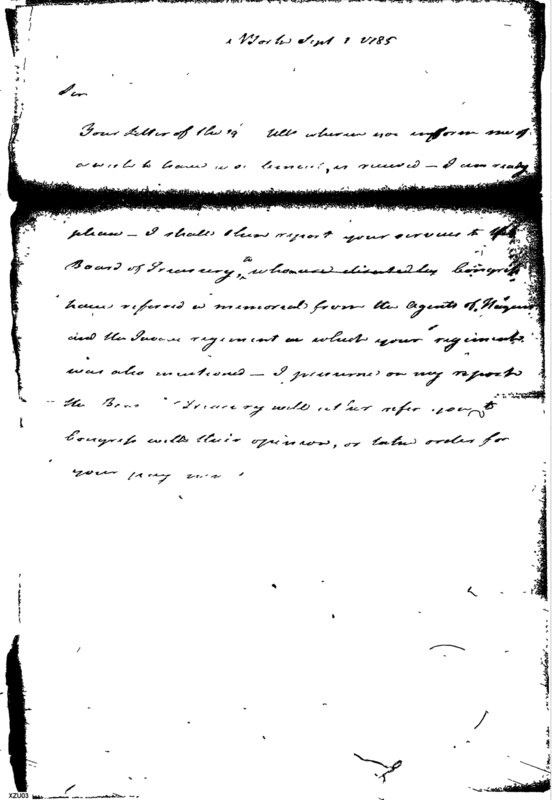 York Sept 1 1785
Sir
Your Letter of the 19 Ult wherein you inform me of
a wish to have is received — I am ready
please — I shall then report your services to the
Board of Treasury, to whom Congress
have referred a memorial from the Agents of Hazen
and the regiment in which your regiment
was also mentioned — I presume on my report
the Treasury will either refer you to
Congress with their opinion, or take order for
your pay
XZU03